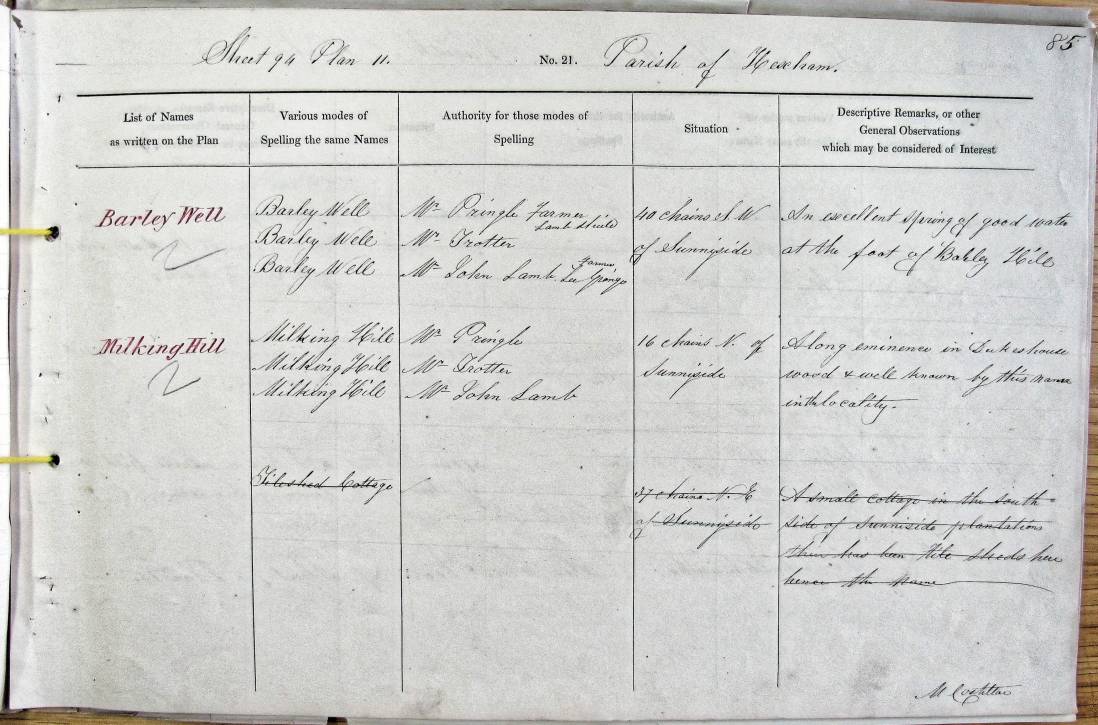 85
Sheet 94 Plan 11. No. 21. Parish of Hexham.
List of Names
as written on the Plan
Various modes of
Spelling the same Names
Authority for those modes of
Spelling
Situation
Descriptive Remarks, or other
General Observations
which may be considered of Interest
Barley Well
Barley Well
Barley Well
Barley Well
Mr Pringle Farmer
Lamb Shield
Mr Trotter
Mr John Lamb Farmer
40 chains S.W.
of Sunnyside
An excellent spring of good water
at the foot of Barley Hill
Milking Hill
Milking Hill
Milking Hill
Milking Hill
Mr Pringle
Mr Trotter
Mr John Lamb
16 chains N. of
Sunniside
A long eminence in Dukeshouse
wood & well known by this name
in the locality.
Tileshed Cottage
37 chains N.E
of Sunnyside
A small cottage in the south
side of Sunniside plantations
there has been Tile sheds here
hence the name